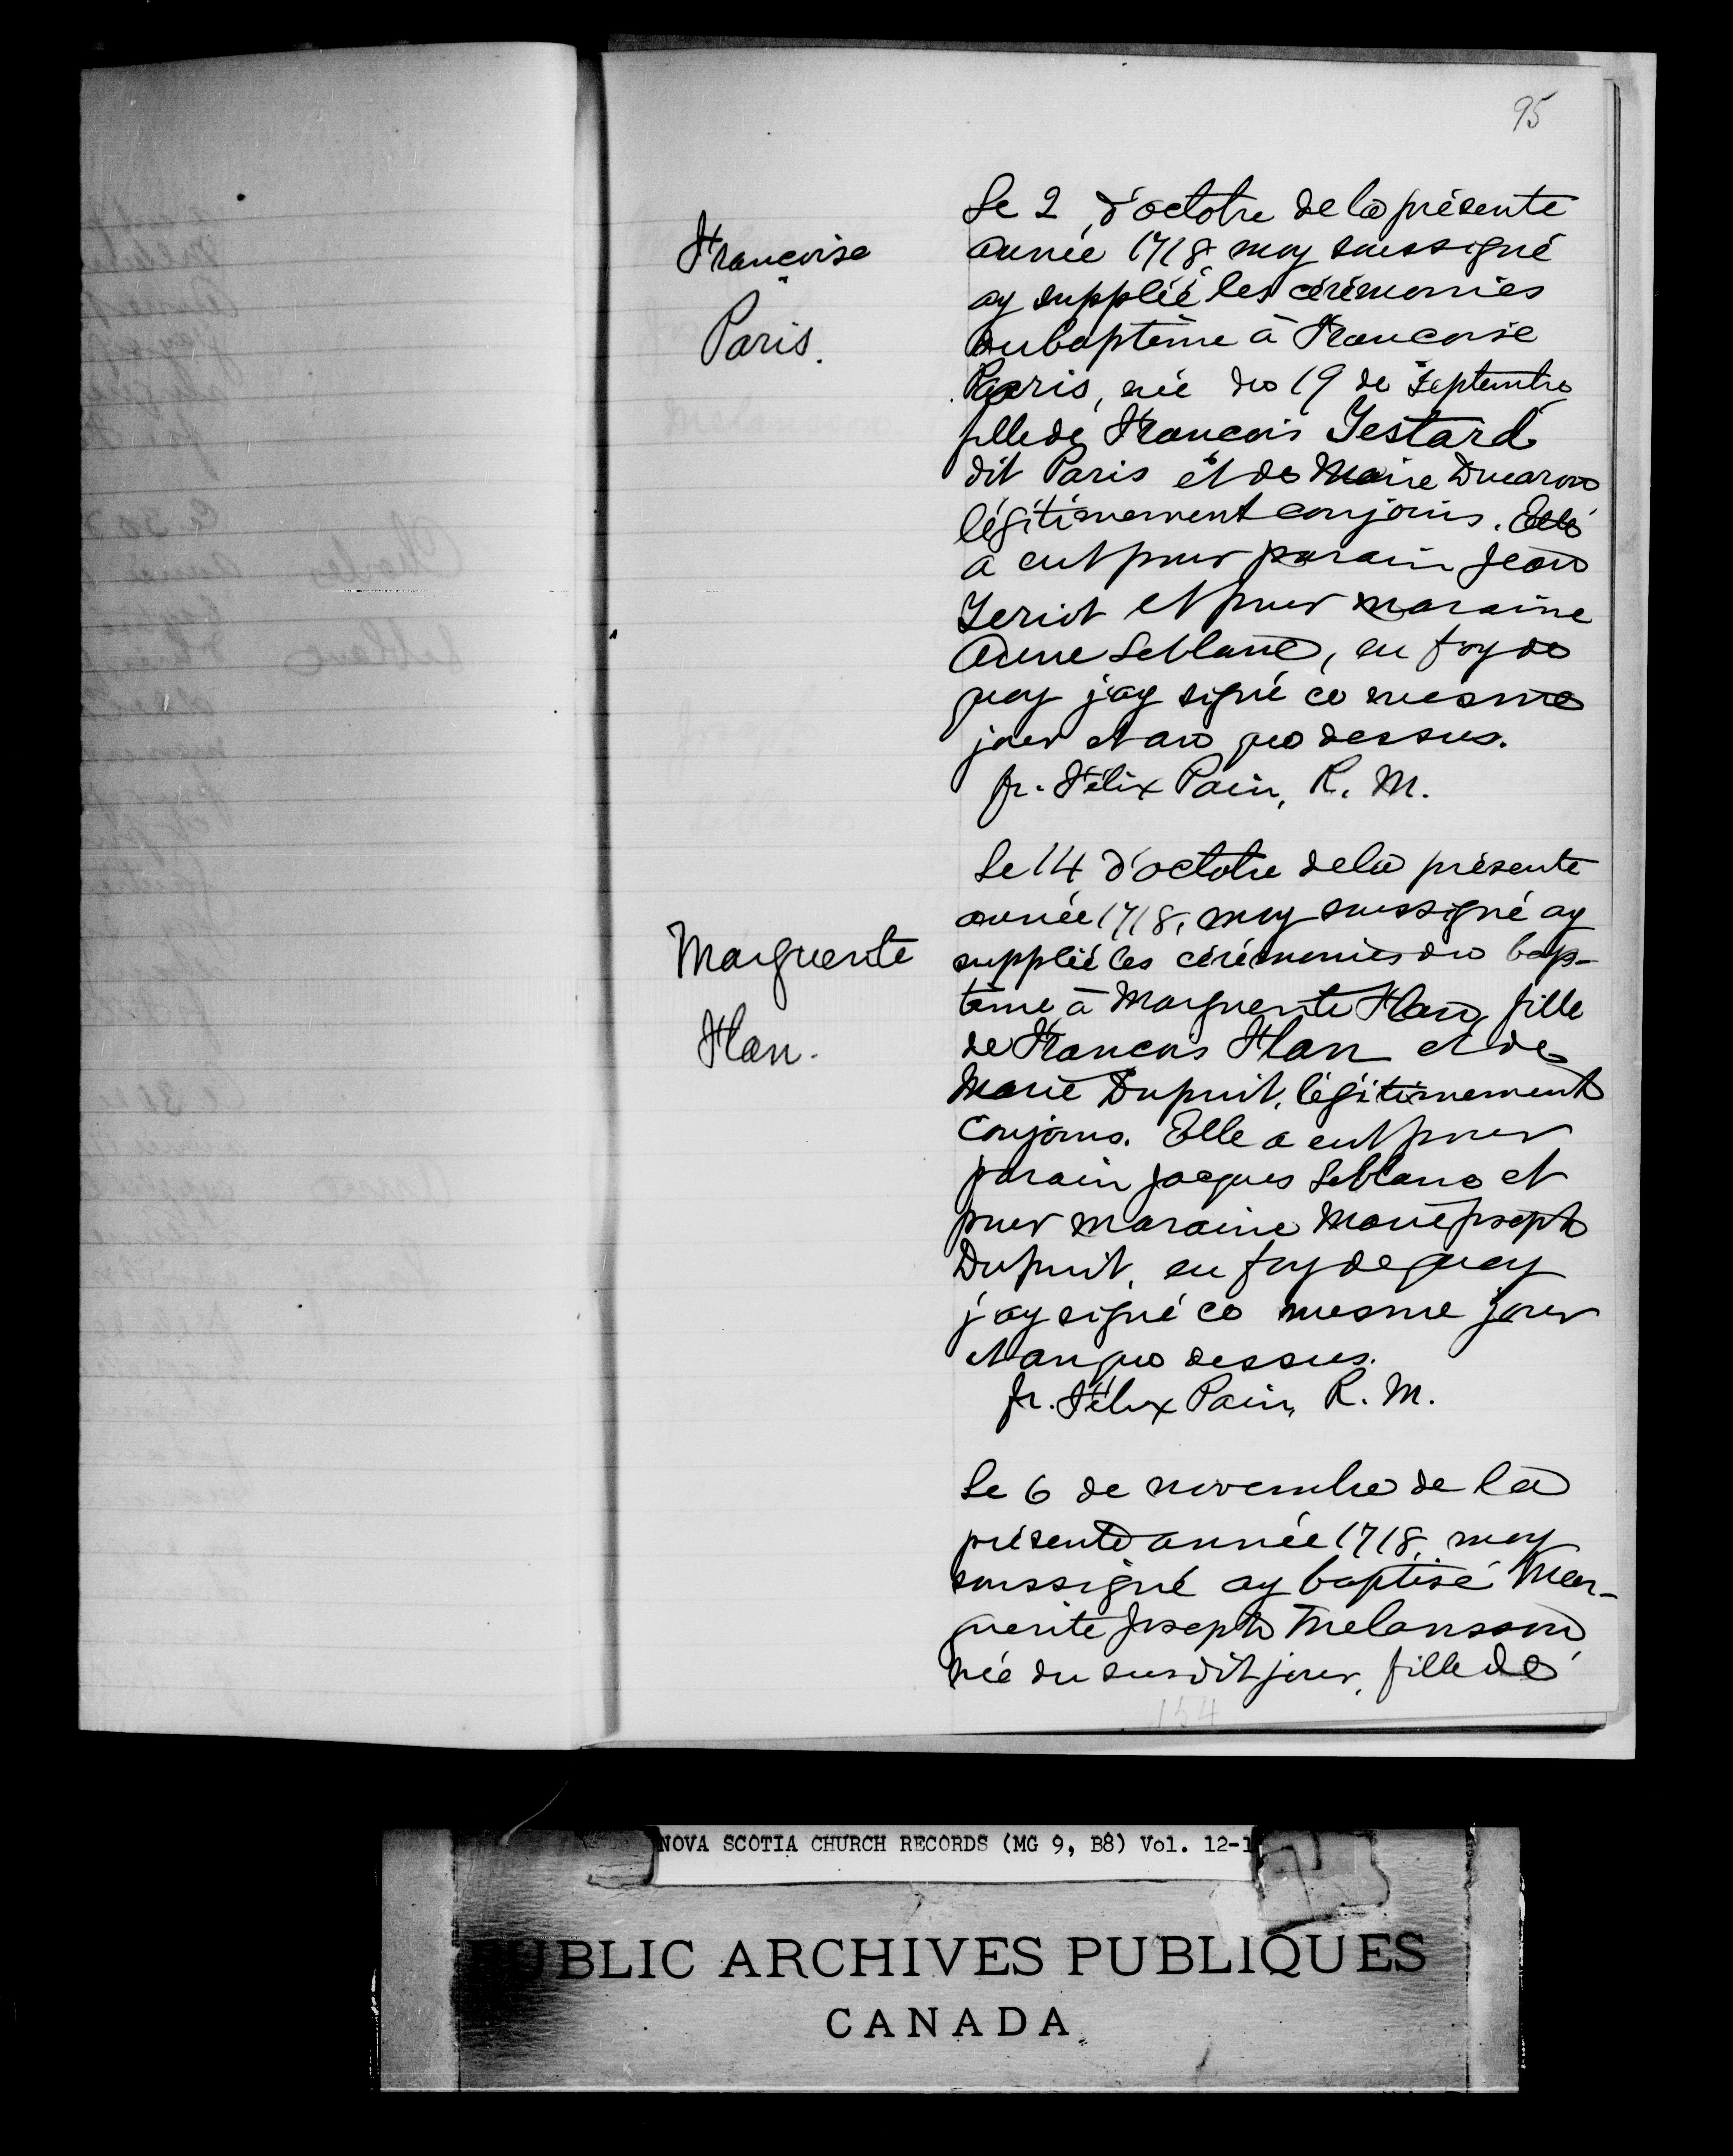 95
Françoise
Paris.
Le 2 d'octobre de la présente
année 1718, moy soussigné
ay supplié les cérémonies
du baptême à Françoise
Paris, née du 19 de septembre
fille de François Testard
dit Paris et de Marie Ducaron
légitimement conjoins. Elle
a eut pour parain Jean
Teriot et pour maraine
Anne Leblanc, en foy de
quoy j'ay signé ce mesme
jour et an que dessus.
fr. Félix Pain, R. M.
Marguerite
Flan.
Le 14 d'octobre de la présente
année 1718, moy soussigné ay
supplié les cérémonies du bap-
tême à Marguerite Flan, fille
de François Flan et de
Marie Dupuit, légitimement
conjoins. Elle a eut pour
parain Jacques Leblanc et
pour maraine Marie Joseph
Dupuit, en foy de quoy
j'ay signé ce mesme jour
et an que dessus.
fr. Félix Pain, R. M.
Le 6 de novembre de la
présente année 1718, moy
soussigné ay baptisé Mar-
guerite Joseph Melansson,
née du susdit jour, fille de
154
NOVA SCOTIA CHURCH RECORDS (MG 9, B8) Vol. 12-1
PUBLIC ARCHIVES PUBLIQUES
CANADA